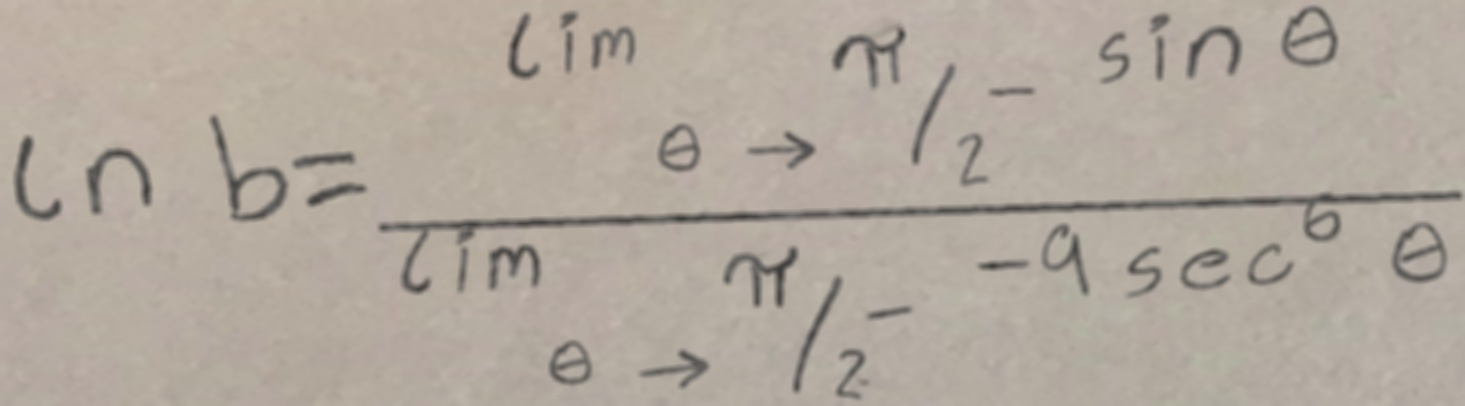 ln b = \frac{\lim_{\theta \to \pi/2^-} \sin \theta}{\lim_{\theta \to \pi/2^-} -9 \sec^6 \theta}